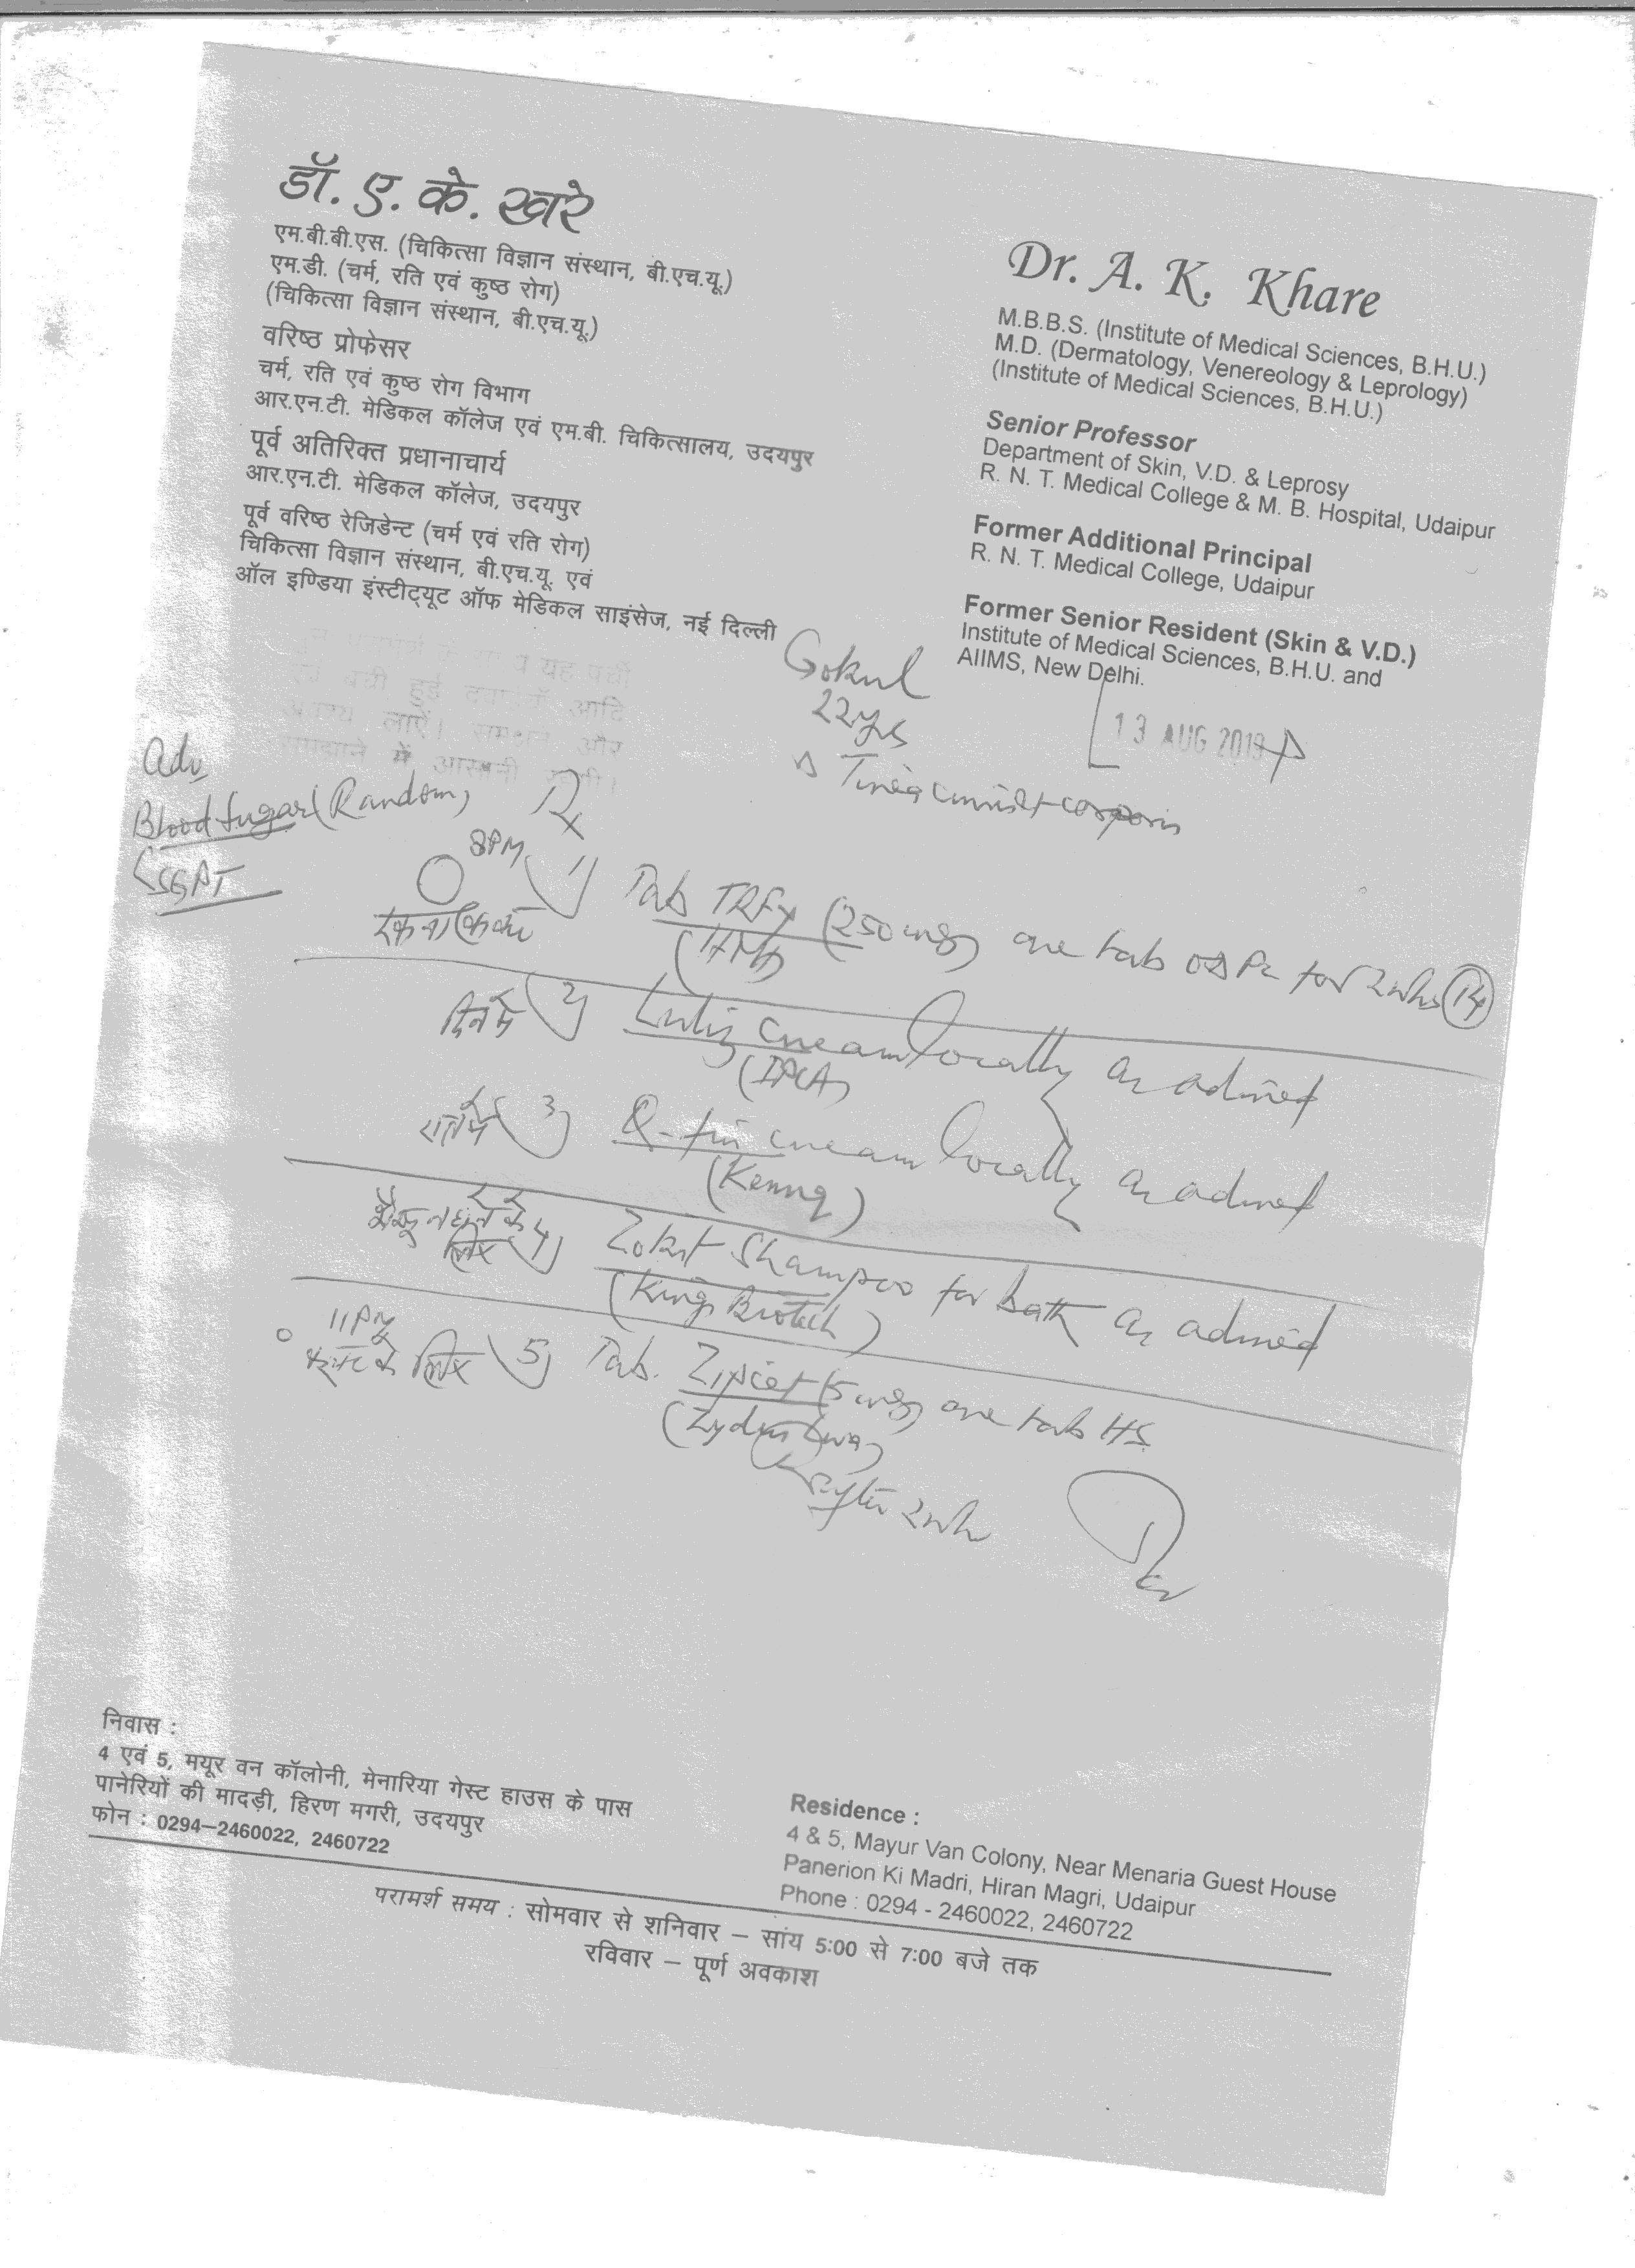 डॉ. ए. के. खरे
एम.बी.बी.एस. (चिकित्सा विज्ञान संस्थान, बी.एच.यू.)
एम.डी. (चर्म, रति एवं कुष्ठ रोग)
(चिकित्सा विज्ञान संस्थान, बी.एच.यू.)
वरिष्ठ प्रोफेसर
चर्म, रति एवं कुष्ठ रोग विभाग
आर.एन.टी. मेडिकल कॉलेज एवं एम.बी. चिकित्सालय, उदयपुर
पूर्व अतिरिक्त प्रधानाचार्य
आर.एन.टी. मेडिकल कॉलेज, उदयपुर
पूर्व वरिष्ठ रेजिडेन्ट (चर्म एवं रति रोग)
चिकित्सा विज्ञान संस्थान, बी.एच.यू. एवं
ऑल इण्डिया इंस्टीट्यूट ऑफ मेडिकल साइंसेज, नई दिल्ली
Dr. A. K. Khare
M.B.B.S. (Institute of Medical Sciences, B.H.U.)
M.D. (Dermatology, Venereology & Leprology)
(Institute of Medical Sciences, B.H.U.)
Senior Professor
Department of Skin, V.D. & Leprosy
R. N. T. Medical College & M. B. Hospital, Udaipur
Former Additional Principal
R. N. T. Medical College, Udaipur
Former Senior Resident (Skin & V.D.)
Institute of Medical Sciences, B.H.U. and
AIIMS, New Delhi.
यह पर्ची
हुई आदि
लाऐं। और
में
Gokul
22yrs
13 AUG 2019
Tinea cruris et corporis
Adv
Blood Sugar (Random)
SGPT
Rx
8PM 1) Tab (250mg) one tab OD PC for 2wks (14)
दिन में 2) cream locally as advised
(IPCA)
रात में 3) cream locally as advised
4) Shampoo for bath as advised
लिए (King Biotech)
11PM
के लिए 5) Tab. Zipcet (5mg) one tab HS
after 2wk
निवास :
4 एवं 5, मयूर वन कॉलोनी, मेनारिया गेस्ट हाउस के पास
पानेरियों की मादड़ी, हिरण मगरी, उदयपुर
फोन : 0294–2460022, 2460722
Residence :
4 & 5, Mayur Van Colony, Near Menaria Guest House
Panerion Ki Madri, Hiran Magri, Udaipur
Phone : 0294 - 2460022, 2460722
परामर्श समय : सोमवार से शनिवार – सांय 5:00 से 7:00 बजे तक
रविवार – पूर्ण अवकाश